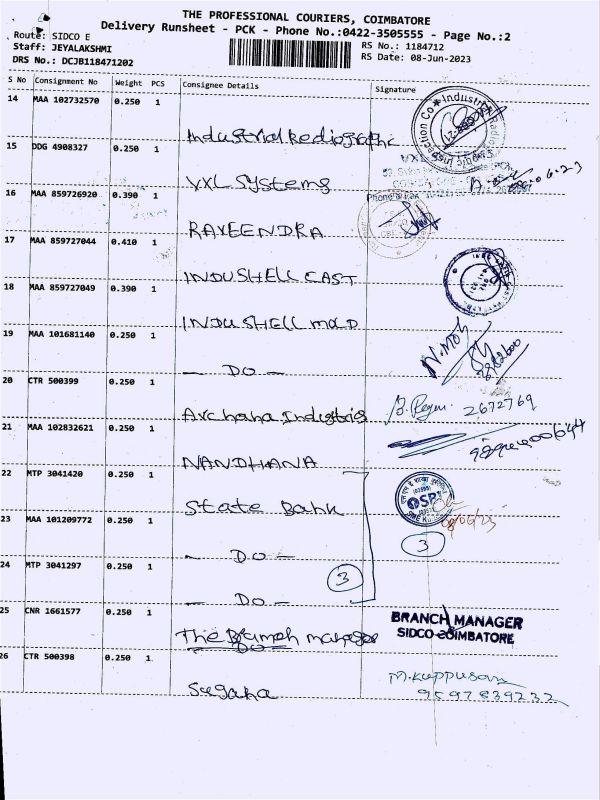 THE PROFESSIONAL COURIERS, COIMBATORE
Delivery Runsheet - PCK - Phone No.:0422-3505555 - Page No.:2
Route: SIDCO E
Staff: JEYALAKSHMI
DRS No.: DCJB118471202
RS No.: 1184712
RS Date: 08-Jun-2023
S No Consignment No Weight PCS Consignee Details Signature
14 MAA 102732570 0.250 1
Industrial Rediographic
15 DDG 4908327 0.250 1
VXL Systems
16 MAA 859726920 0.390 1
RAVEENDRA
17 MAA 859727044 0.410 1
INDUSHELL CAST
18 MAA 859727049 0.390 1
INDUSHELL MOLD
19 MAA 101681140 0.250 1
— DO —
20 CTR 500399 0.250 1
Archana Industries
2672769
21 MAA 102832621 0.250 1
NANDHANA
22 MTP 3041420 0.250 1
State Bank
SBI
08/06/23
23 MAA 101209772 0.250 1
— DO —
3
24 MTP 3041297 0.250 1
3
— DO —
25 CNR 1661577 0.250 1
The Branch manager
BRANCH MANAGER
SIDCO COIMBATORE
26 CTR 500398 0.250 1
Sugana
M.Kuppusam
9597839232